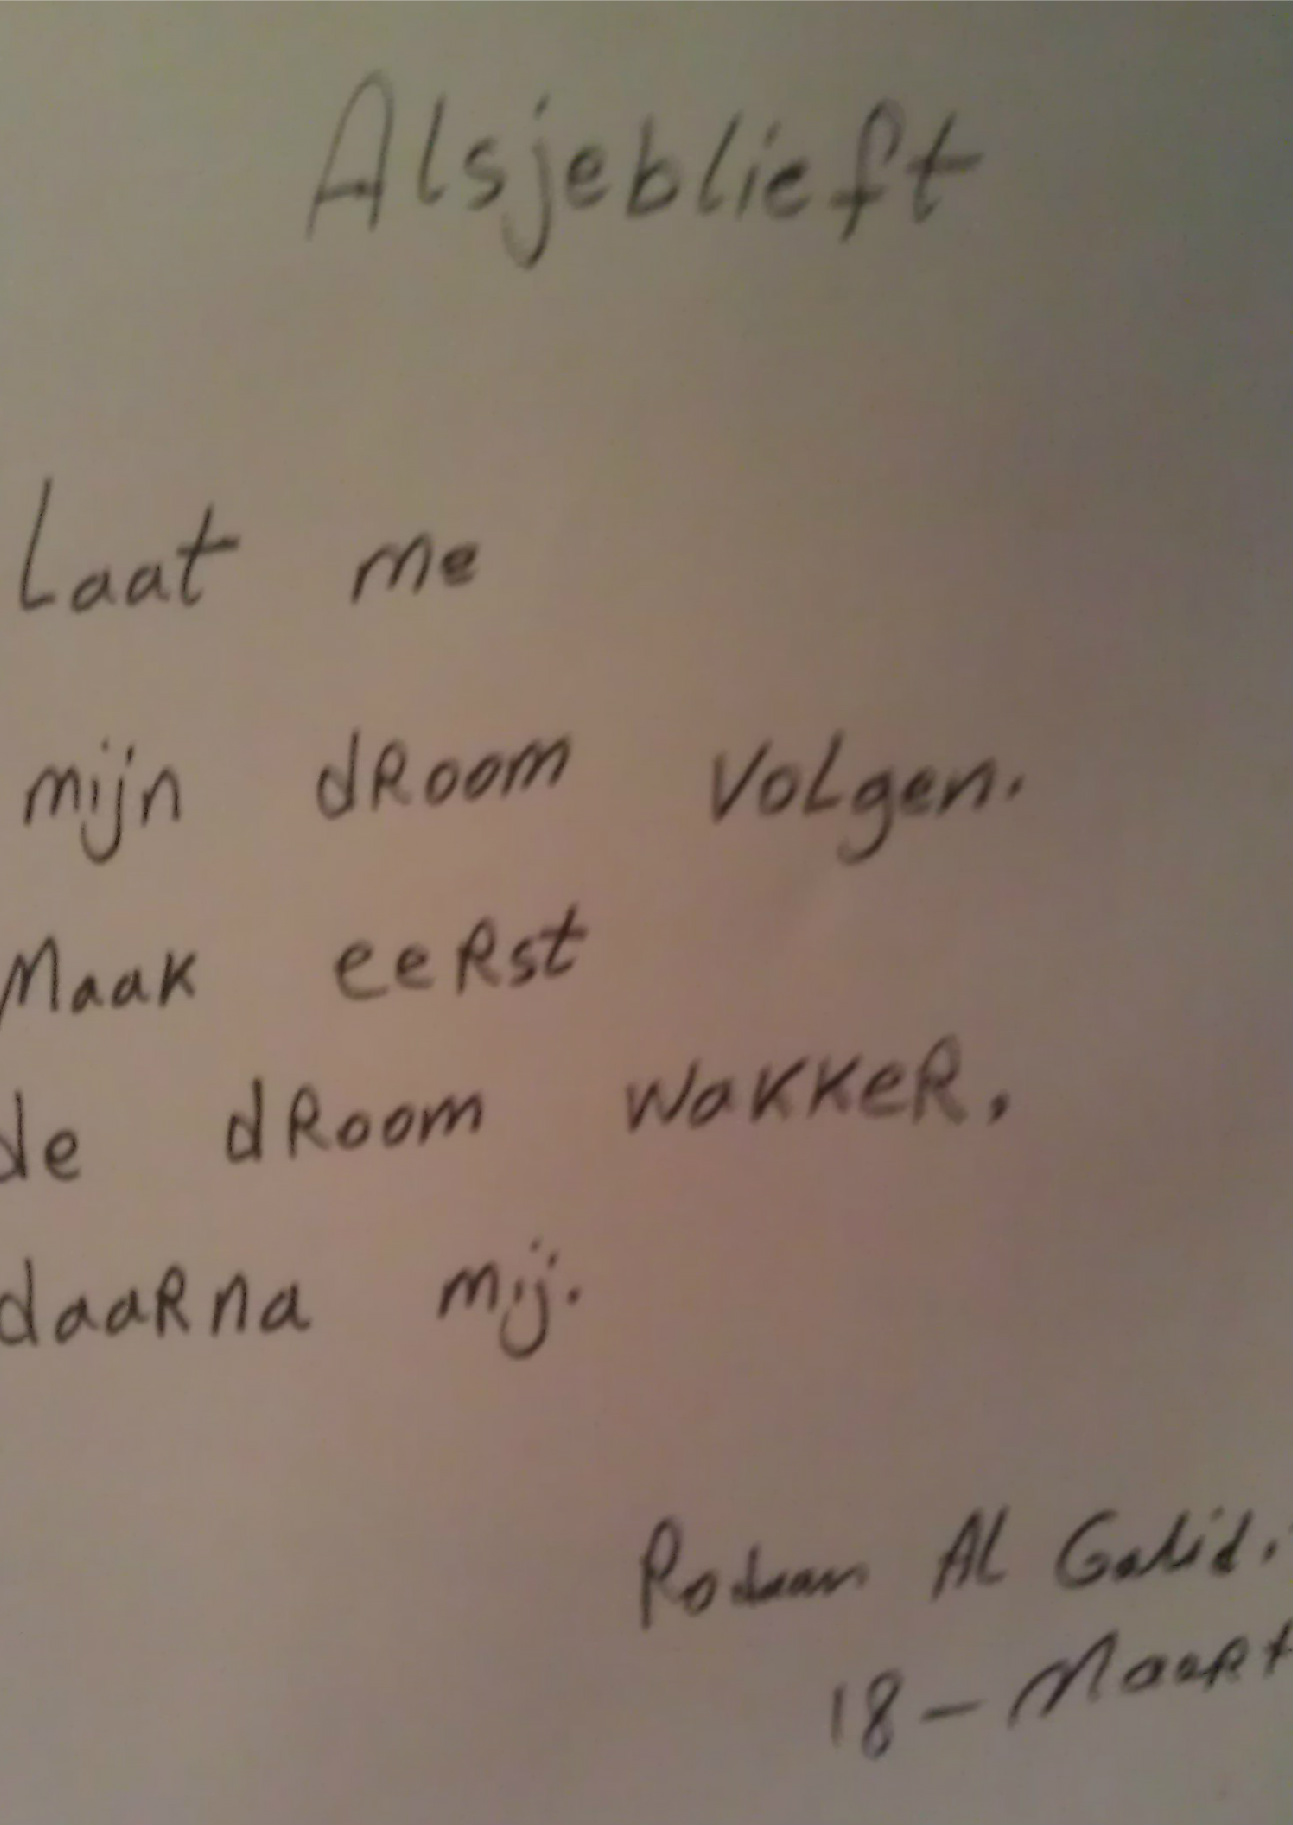 Alsjeblieft
Laat me
mijn droom volgen.
Maak eerst
de droom wakker,
daarna mij.
Rodaan Al Galid.
18 - Maart